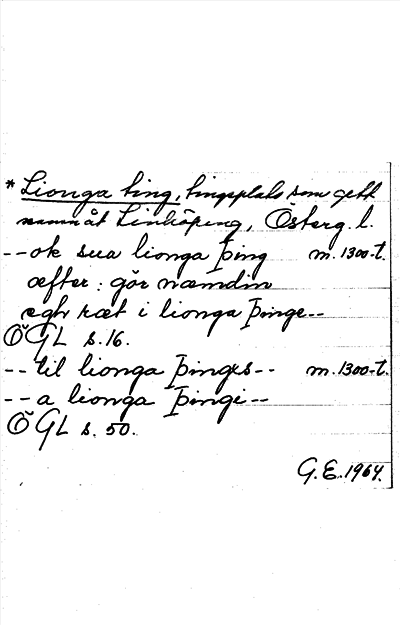 * Lionga ting, tingsplats som gett
namn åt Linköping, Österg. l.
-- ok sua lionga þing m. 1300-t.
æfter : gör næmdin
egh ræt i lionga þinge --
ÖGL s. 16.
-- til lionga þings -- m. 1300-t.
-- a lionga þingi --
ÖGL s. 50.
G.E. 1964.